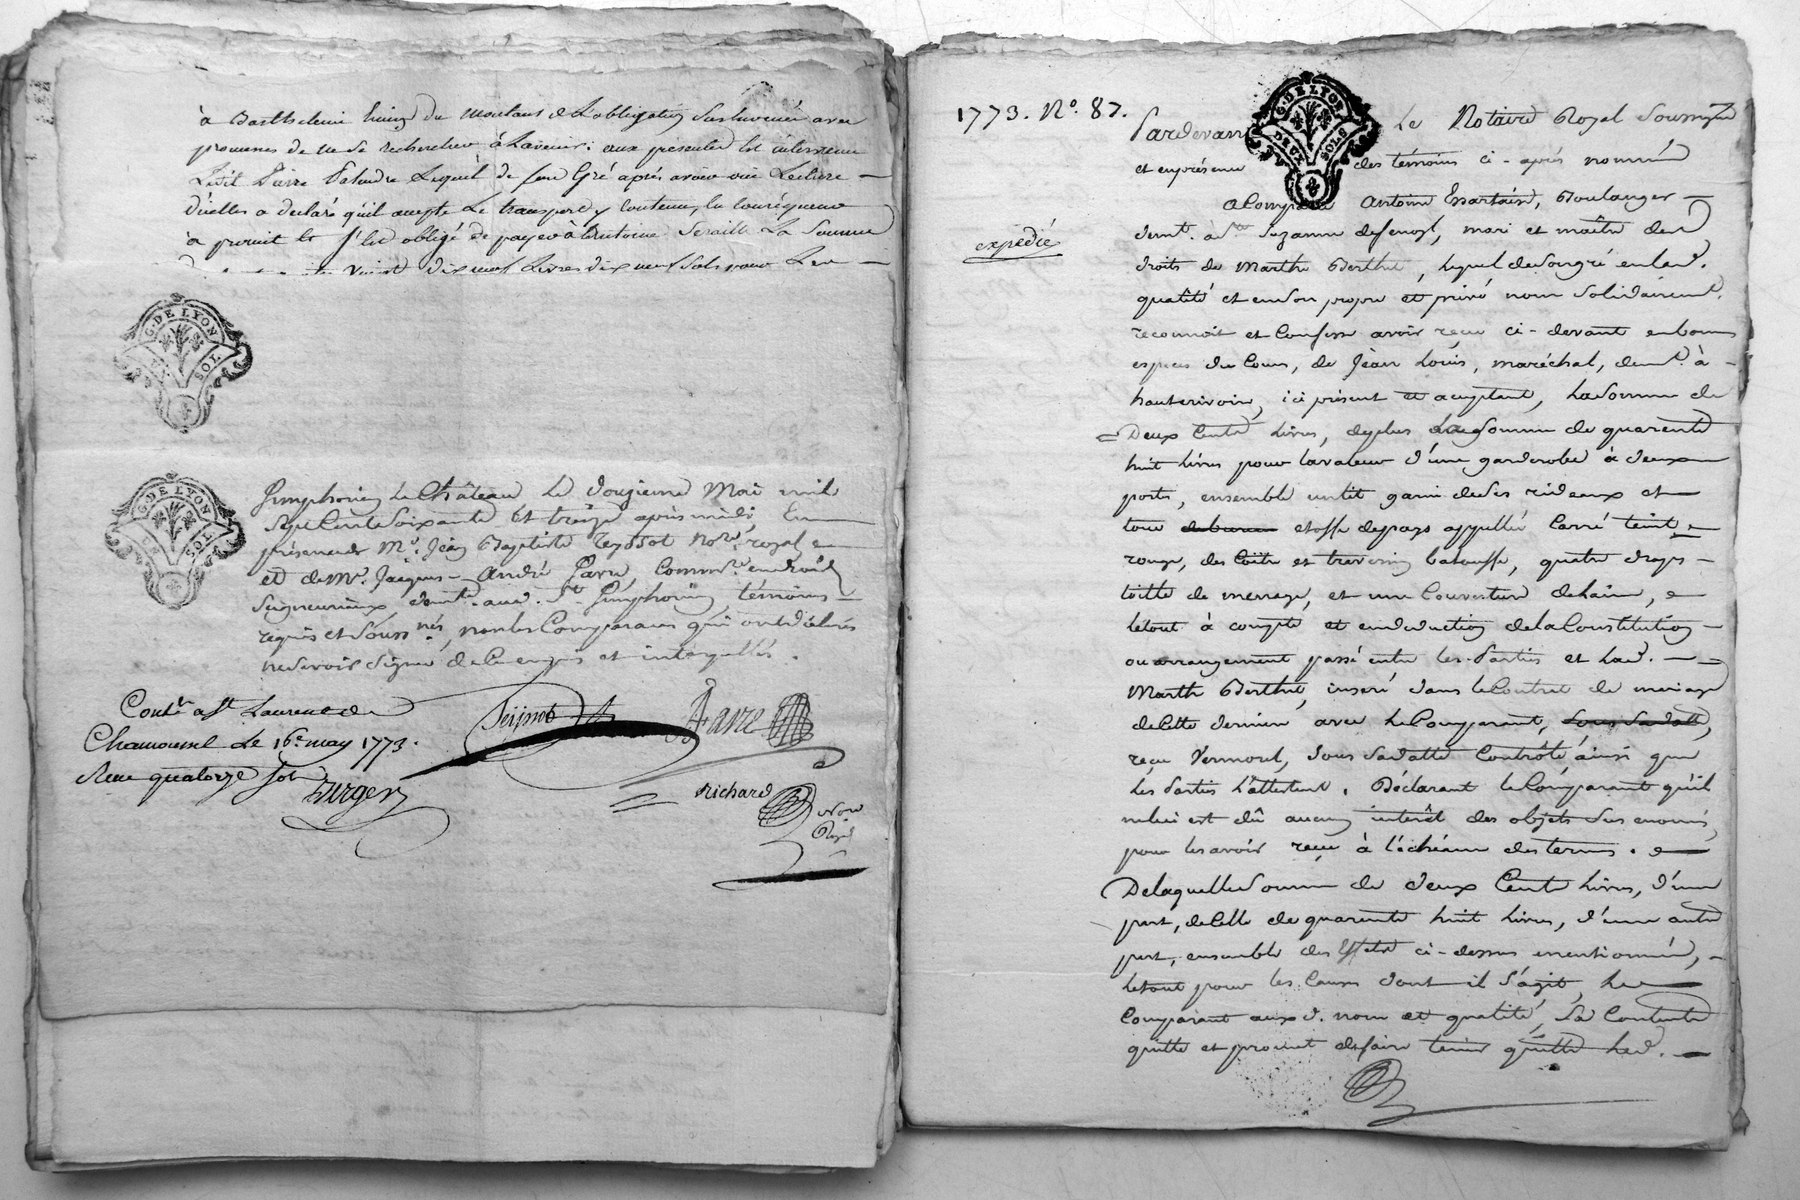 à Barthelemi du montant de L'obligation avec
promesse de ne se rechercher à L'avenir. aux presentes est intervenu
Ledit Pierre Lequel de son Gré après avoir oui Lecture
d'icelles a declaré qu'il accepte Le transport y contenu, en conséquence
à promit et s'est obligé de payer à Antoine La Somme
vingt dix neuf Livres dix neuf Sols
G. DE LYON
UN SOL
G. DE LYON
UN SOL
Simphorien Le Château Le douzieme Mai mil
Sept Cents Soixante et treize après midi, En
présence de Me. Jean Baptiste Teyssot Nore. royal
et de Mr. Jacques André Favre, Commre. en droits
Seigneuriaux, demts. aud. St. Simphorien témoins
requis et Soussnés, non les Comparans qui ont déclarés
ne Savoir Signer de Ce enquis et interpellés.
Favre
Contlé a St Laurent de
Chamousset Le 16e may 1773.
Reçu quatorze sols
richard
Nore
Royal
1773. No. 87.
expedié
G. DE LYON
DEUX SOLS
Pardevant Le Notaire Royal Soussigné
et en présence des témoins ci-après nommés
a Comparu Antoine Boulanger
demt. à Ste. Suzanne mari et maître des
droits de Marthe Berthet, lequel de son gré en lad.
qualité et en son propre et privé nom Solidairemt.
reconnoit et Confesse avoir reçu ci-devant en bonnes
especes du Cours, de Jean Louis, maréchal, demt. à
hauterivoire, ici présent et acceptant, La Somme de
Deux Cents Livres, de plus La Somme de quarente
huit Livres pour la valeur d'une garderobe à deux
portes, ensemble un lit garni de Ses rideaux et
tour etoffe de pays appellée Carré teint
rouge, des Coitre et traversin quatre draps
toille de menage, et une Couverture de laine,
le tout à compte et en deduction de la Constitution
ou arrangement passé entre les Parties et Lad.
Marthe Berthet, inseré dans le Contrat de mariage
de Cette derniere avec Le Comparant,
reçu Vermorel, Sous Sa datte Contrôlé ainsi que
Les Parties l'attestent. Déclarant le Comparant qu'il
ne lui est dû aucun intérêt des objets Sus enoncés,
pour les avoir reçu à l'échéance des termes.
De laquelle Somme de deux Cents Livres, d'une
part, de Celle de quarente huit Livres, d'une autre
part, ensemble des Effets ci-dessus mentionnés,
le tout pour les Causes dont il S'agit, Le
Comparant auxd. nom et qualité, Se Contente
quitte et promet de faire tenir quitte Led.